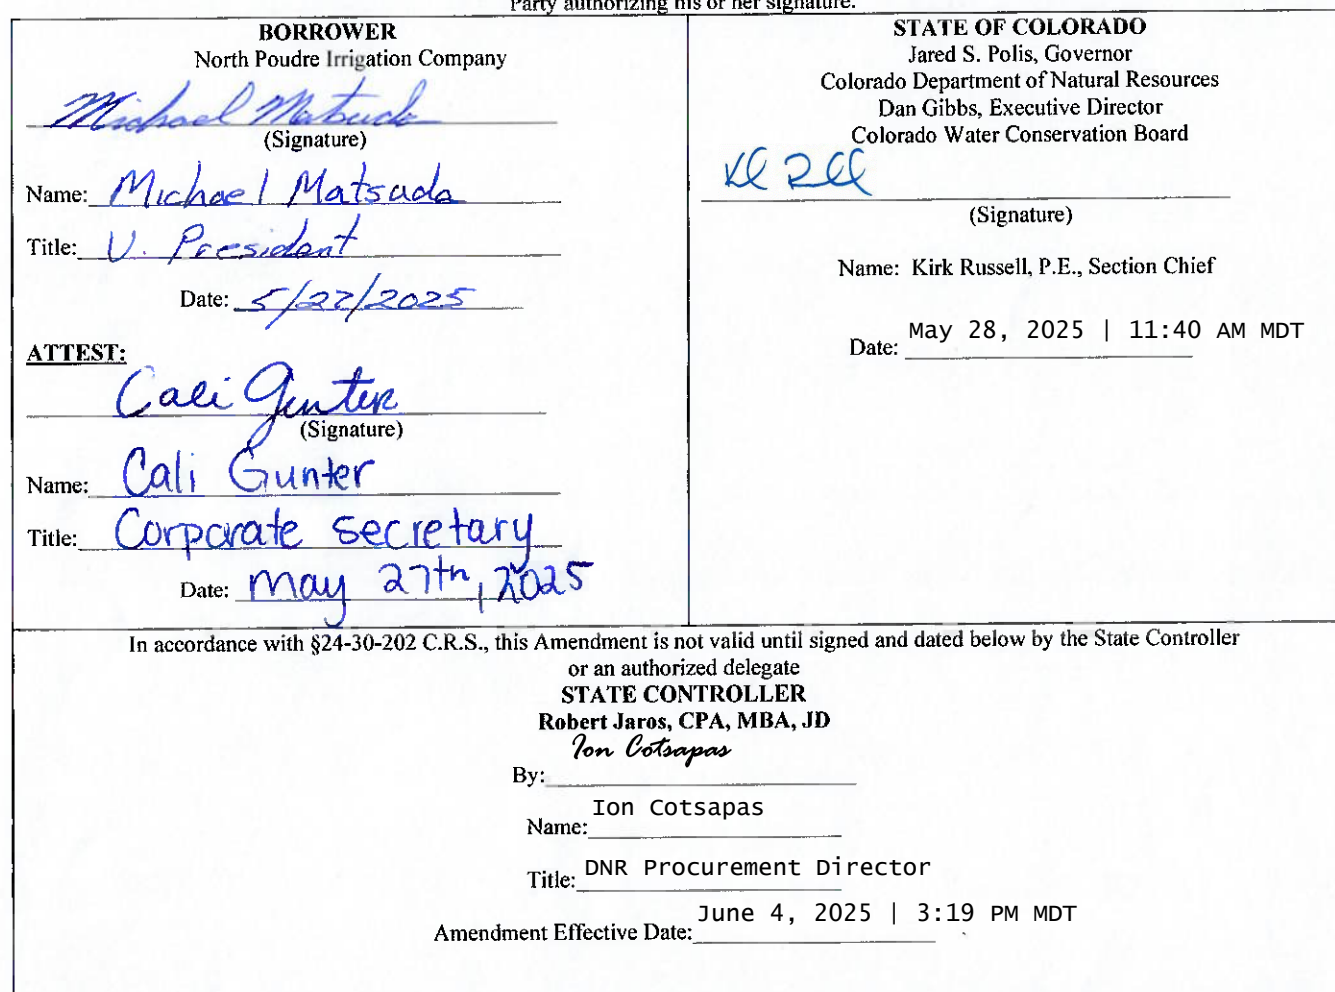 Party authorizing his or her signature.
BORROWER
North Poudre Irrigation Company
Michael Matsuda
(Signature)
Name: Michael Matsuda
Title: V. President
Date: 5/27/2025
ATTEST:
Cali Gunter
(Signature)
Name: Cali Gunter
Title: Corporate secretary
Date: May 27th, 2025
STATE OF COLORADO
Jared S. Polis, Governor
Colorado Department of Natural Resources
Dan Gibbs, Executive Director
Colorado Water Conservation Board
(Signature)
Name: Kirk Russell, P.E., Section Chief
Date: May 28, 2025 | 11:40 AM MDT
In accordance with §24-30-202 C.R.S., this Amendment is not valid until signed and dated below by the State Controller
or an authorized delegate
STATE CONTROLLER
Robert Jaros, CPA, MBA, JD
Ion Cotsapas
By:
Name: Ion Cotsapas
Title: DNR Procurement Director
Amendment Effective Date: June 4, 2025 | 3:19 PM MDT